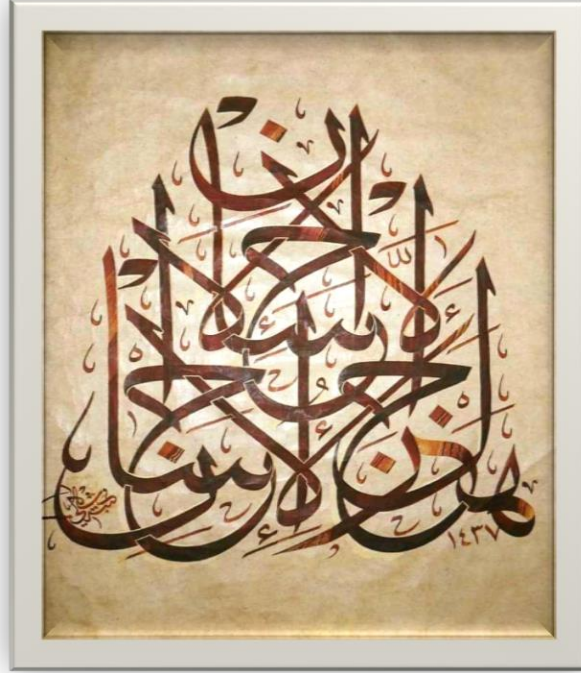 هل جزاء الإحسان إلا الإحسان
١٤٣٧